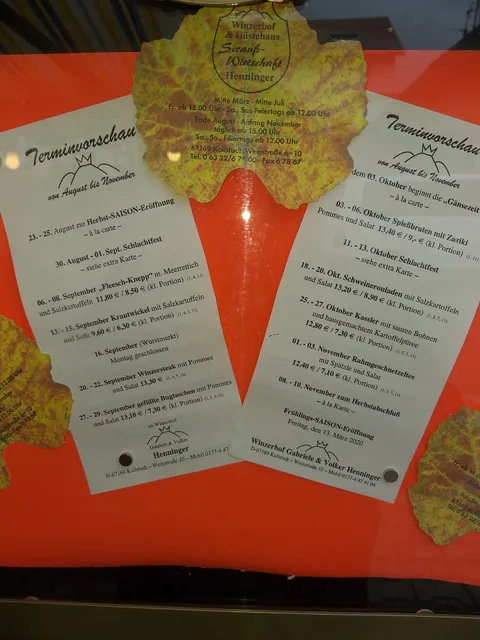 Winzerhof
& Gästehaus
Strauß-
Wirtschaft
Henninger
Mitte März - Mitte Juli
Fr. ab 16.00 Uhr - Sa., So.+Feiertags ab 12.00 Uhr
Ende August - Anfang November
täglich ab 15.00 Uhr
Sa., So., Feiertags ab 12.00 Uhr
67169 Kallstadt · Weinstraße 10
Tel. 0 63 22/6 · Fax 6 78 67
Terminvorschau
von August bis November
23. - 25. August zur Herbst-SAISON-Eröffnung
– à la carte –
30. August - 01. Sept. Schlachtfest
– siehe extra Karte –
06. - 08. September „Fleesch-Knepp“ m. Meerrettich
und Salzkartoffeln 11,80 € / 8,50 € (kl. Portion)
13. - 15. September Krautwickel mit Salzkartoffeln
und Soße 9,60 € / 6,30 € (kl. Portion)
16. September (Wurstmarkt)
Montag geschlossen
20. - 22. September Winzersteak mit Pommes
und Salat 13,30 €
27. - 29. September gefüllte Buglaschen mit Pommes
und Salat 13,10 € / 7,30 € (kl. Portion)
im Winzerhof
Gabriele & Volker
Henninger
D-67169 Kallstadt – Weinstraße 10 – Mobil 0177-4 47
Terminvorschau
von August bis November
dem 03. Oktober beginnt die „Gänsezeit
– à la carte –
03. - 06. Oktober Spießbraten mit Zaziki
Pommes und Salat 13,40 € / 9,- € (kl. Portion)
11. - 13. Oktober Schlachtfest
– siehe extra Karte –
18. - 20. Okt. Schweinerouladen mit Salzkartoffeln
und Salat 13,20 € / 8,90 € (kl. Portion)
25. - 27. Oktober Kassler mit sauren Bohnen
und hausgemachtem Kartoffelpüree
12,80 € / 7,30 € (kl. Portion)
01. - 03. November Rahmgeschnetzeltes
mit Spätzle und Salat
12,40 € / 7,10 € (kl. Portion)
08. - 10. November zum Herbstabschluß
– à la Karte –
Frühlings-SAISON-Eröffnung
Freitag, den 13. März 2020
Winzerhof Gabriele & Volker Henninger
D-67169 Kallstadt – Weinstraße 10 – Mobil 0177-4 47 91 04